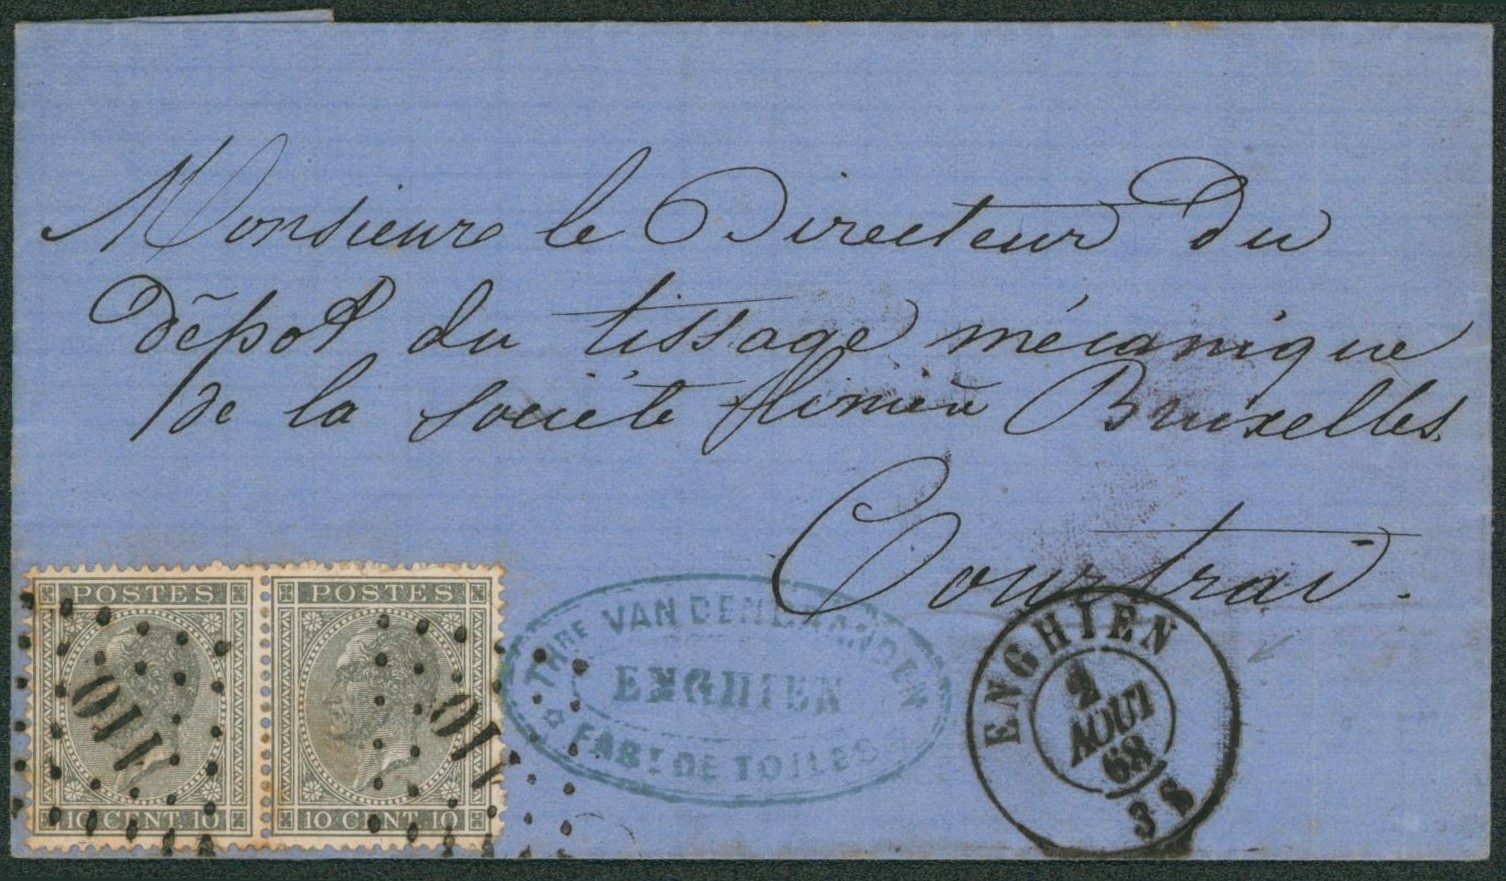 Monsieur le Directeur du
dépot du tissage mécanique
de la société linière Bruxelles
Courtrai.
POSTES
10 CENT. 10
110
POSTES
10 CENT. 10
110
THRE VAN DENBRANDEN
ENGHIEN
FABT DE TOILES
ENGHIEN
2
AOUT
68
3 S